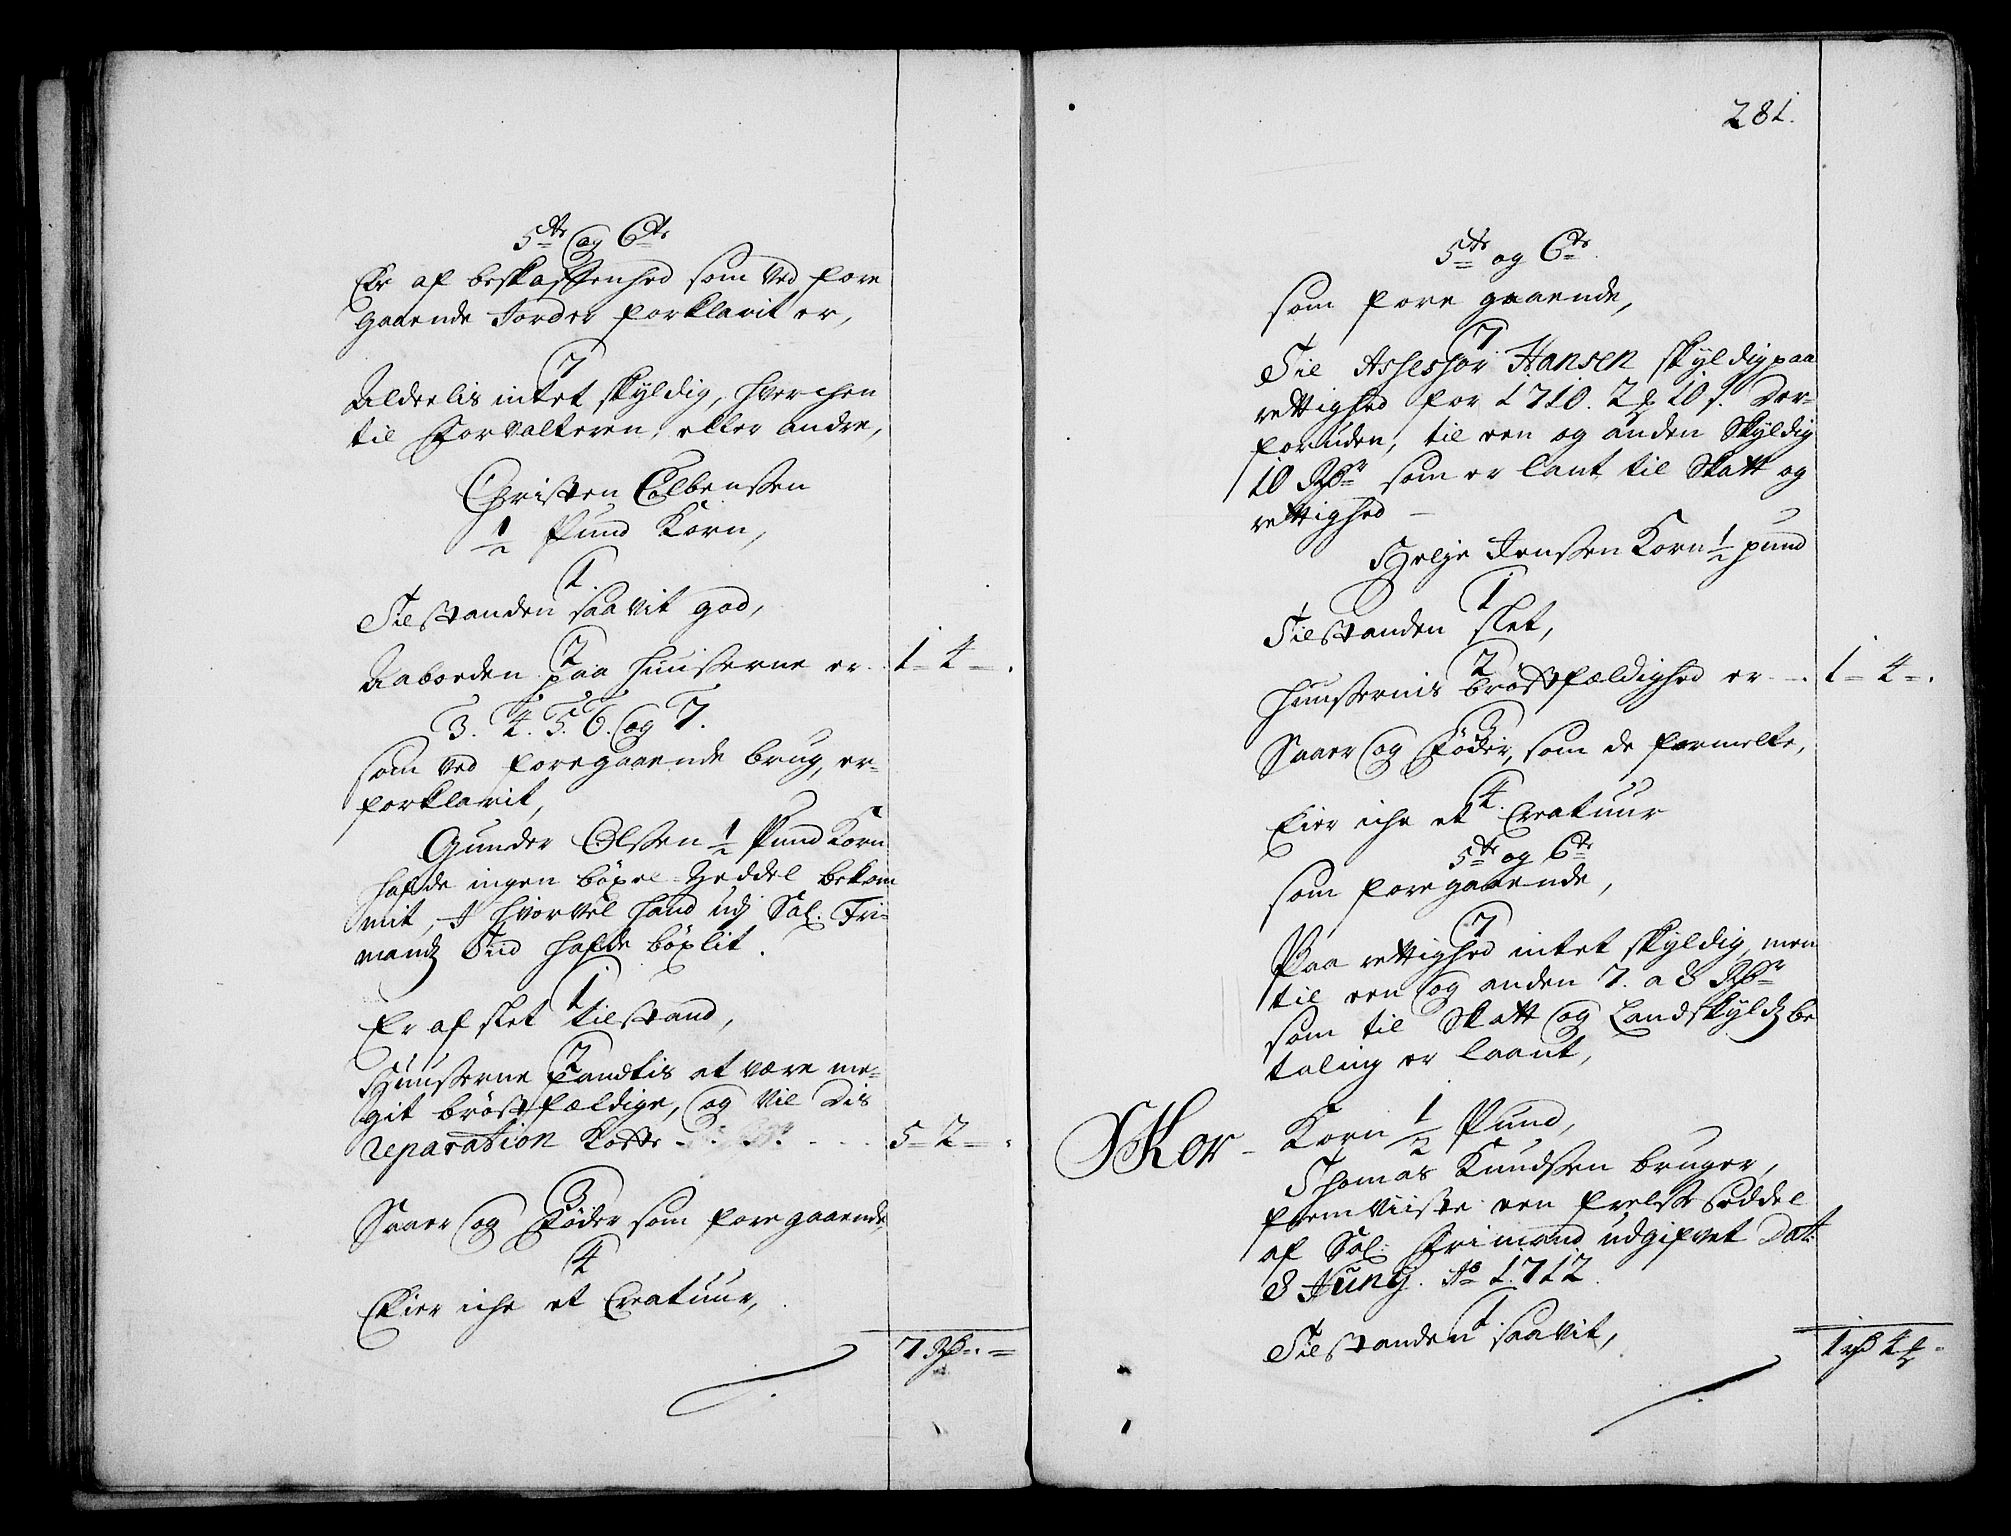 5te og 6te
Er af beskaffenhed som ved fore
gaaende Jorder forklarit er,
7
Alderlis intet skyldig, hverchen
til Forvalteren, eller andre,
Christen Colbenssen
1/2 Pund Korn,
1.
Tilstanden saavit god,
2
Aaboeden paa Huusserne er 1 - 4 - .
3. 4. 5. 6. og 7.
som ved foregaaende brug, er
forklarit,
Gunder Olssen 1/2 Pund Korn
hafde ingen böxel Zeddel bekom
mit, I hvorvel hand udj Sal. Fri-
mandz Tiid hafde böxlit.
1
Er af slet tilstand,
2
Huusserne fandtis at være me-
git bröstfældige, og vil dis
reparation koste 5 - 2 - .
3
Saaer og föder som foregaaende
4
Eier iche et Creatuur,
7 Rdr - =
281.
5te og 6te
som fore gaaende,
7
Til Assessor Hansen skyldig paa
rettighed for 1710. 2 ß 10 s. der-
foruden, til een og anden Skyldig
10 Rdr som er laant til Skatt og
rettighed -
Helje Jenssen Korn 1/2 pund
1
Tilstanden slet,
2
Huussernis bröstfældighed er - . 1 - 4 - .
3
Saaer og föder, som de formelte,
4.
Eier iche et Creatuur
5te og 6te
som foregaaende,
7
Paa rettighed intet skyldig, men
til een og anden 7. a 8 Rdr
som til Skatt og Landskyldz be
taling er laant,
SKor - Korn 1/2 Pund,
Thomas Knudssen bruger,
fremviiste een frelsse Seddel
af Sal: Frimand udgifvet Dat:
8 Junij. Ao 1712.
1
Tilstanden saavit,
1 rd 4 ß -